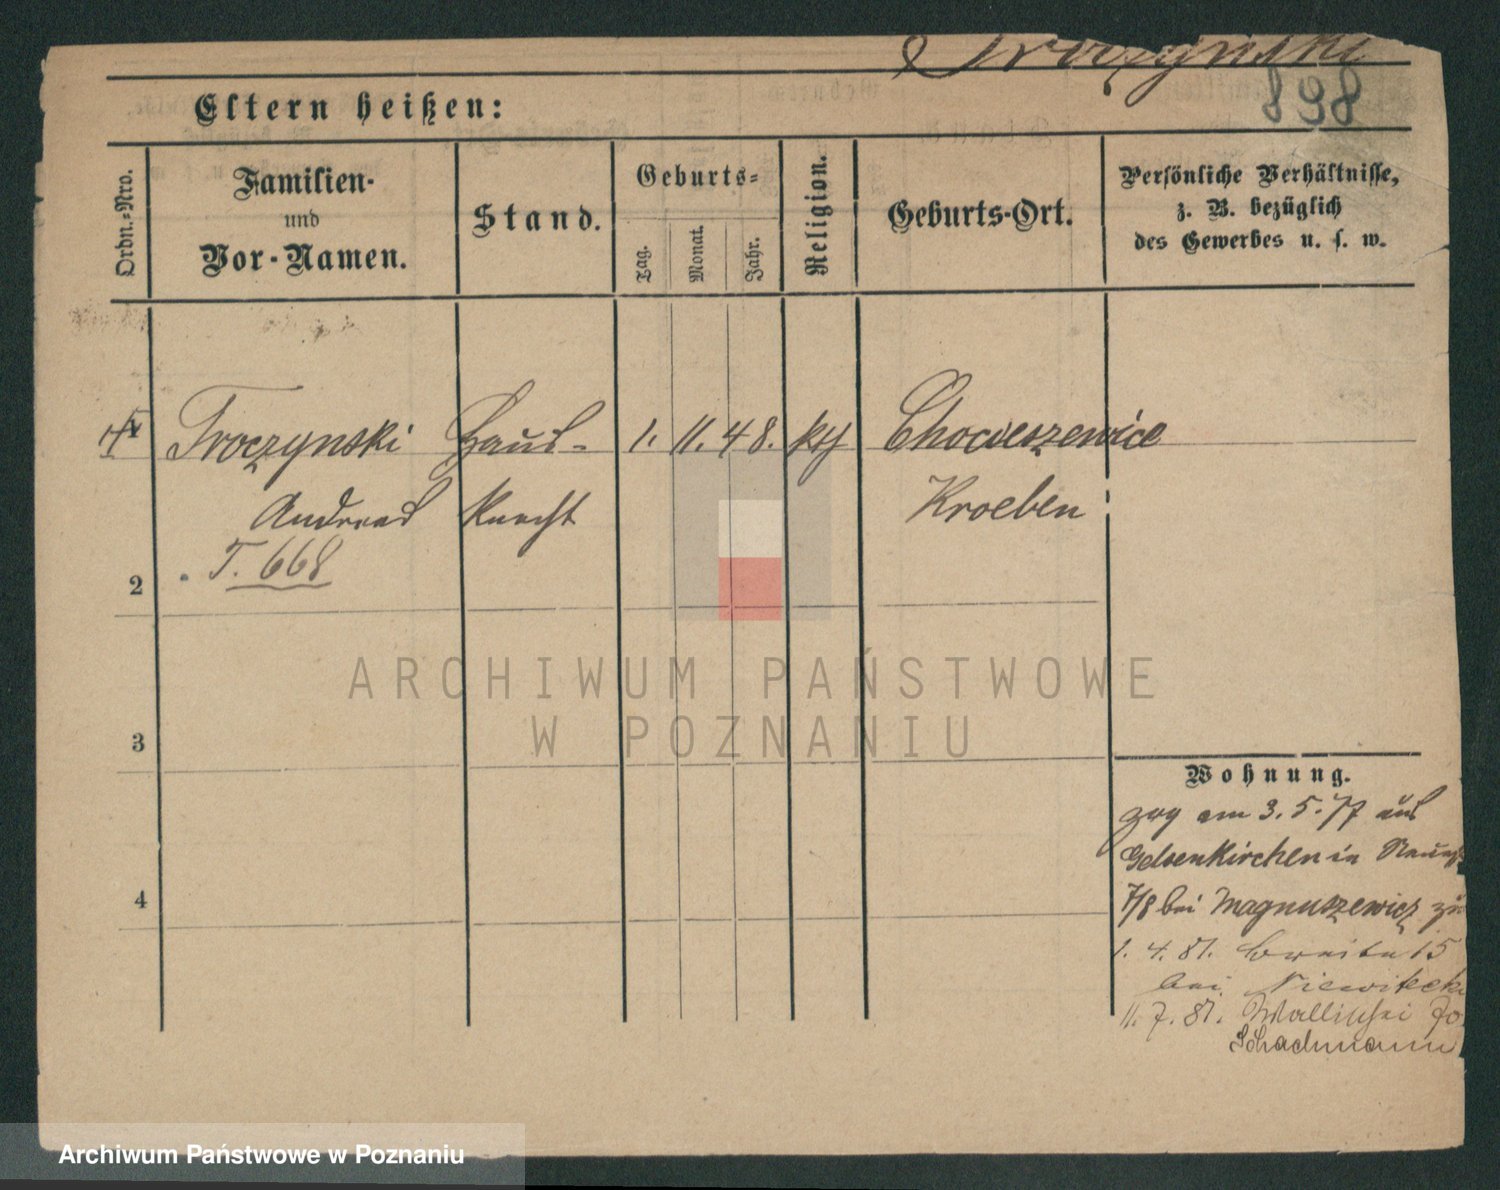 Troczynski
898
Eltern heißen:
Ordn.-Nro.
Familien-
und
Vor-Namen.
Stand.
Geburts-
Tag.
Monat.
Jahr.
Religion.
Geburts-Ort.
Persönliche Verhältnisse,
z. B. bezüglich
des Gewerbes u. s. w.
Troczynski Haus- 1. 11. 48. kth Chocieszewice
Andreas Knecht Kroeben
T. 668
2
3
4
Wohnung.
zog am 3. 5. 77 aus
Gelsenkirchen in
7/8 bei Magnuszewicz zu
1. 4. 81. Breite 15
bei Niewitecki
11. 7. 81. Wallischei 70
Schachmann
ARCHIWUM PAŃSTWOWE
W POZNANIU
Archiwum Państwowe w Poznaniu